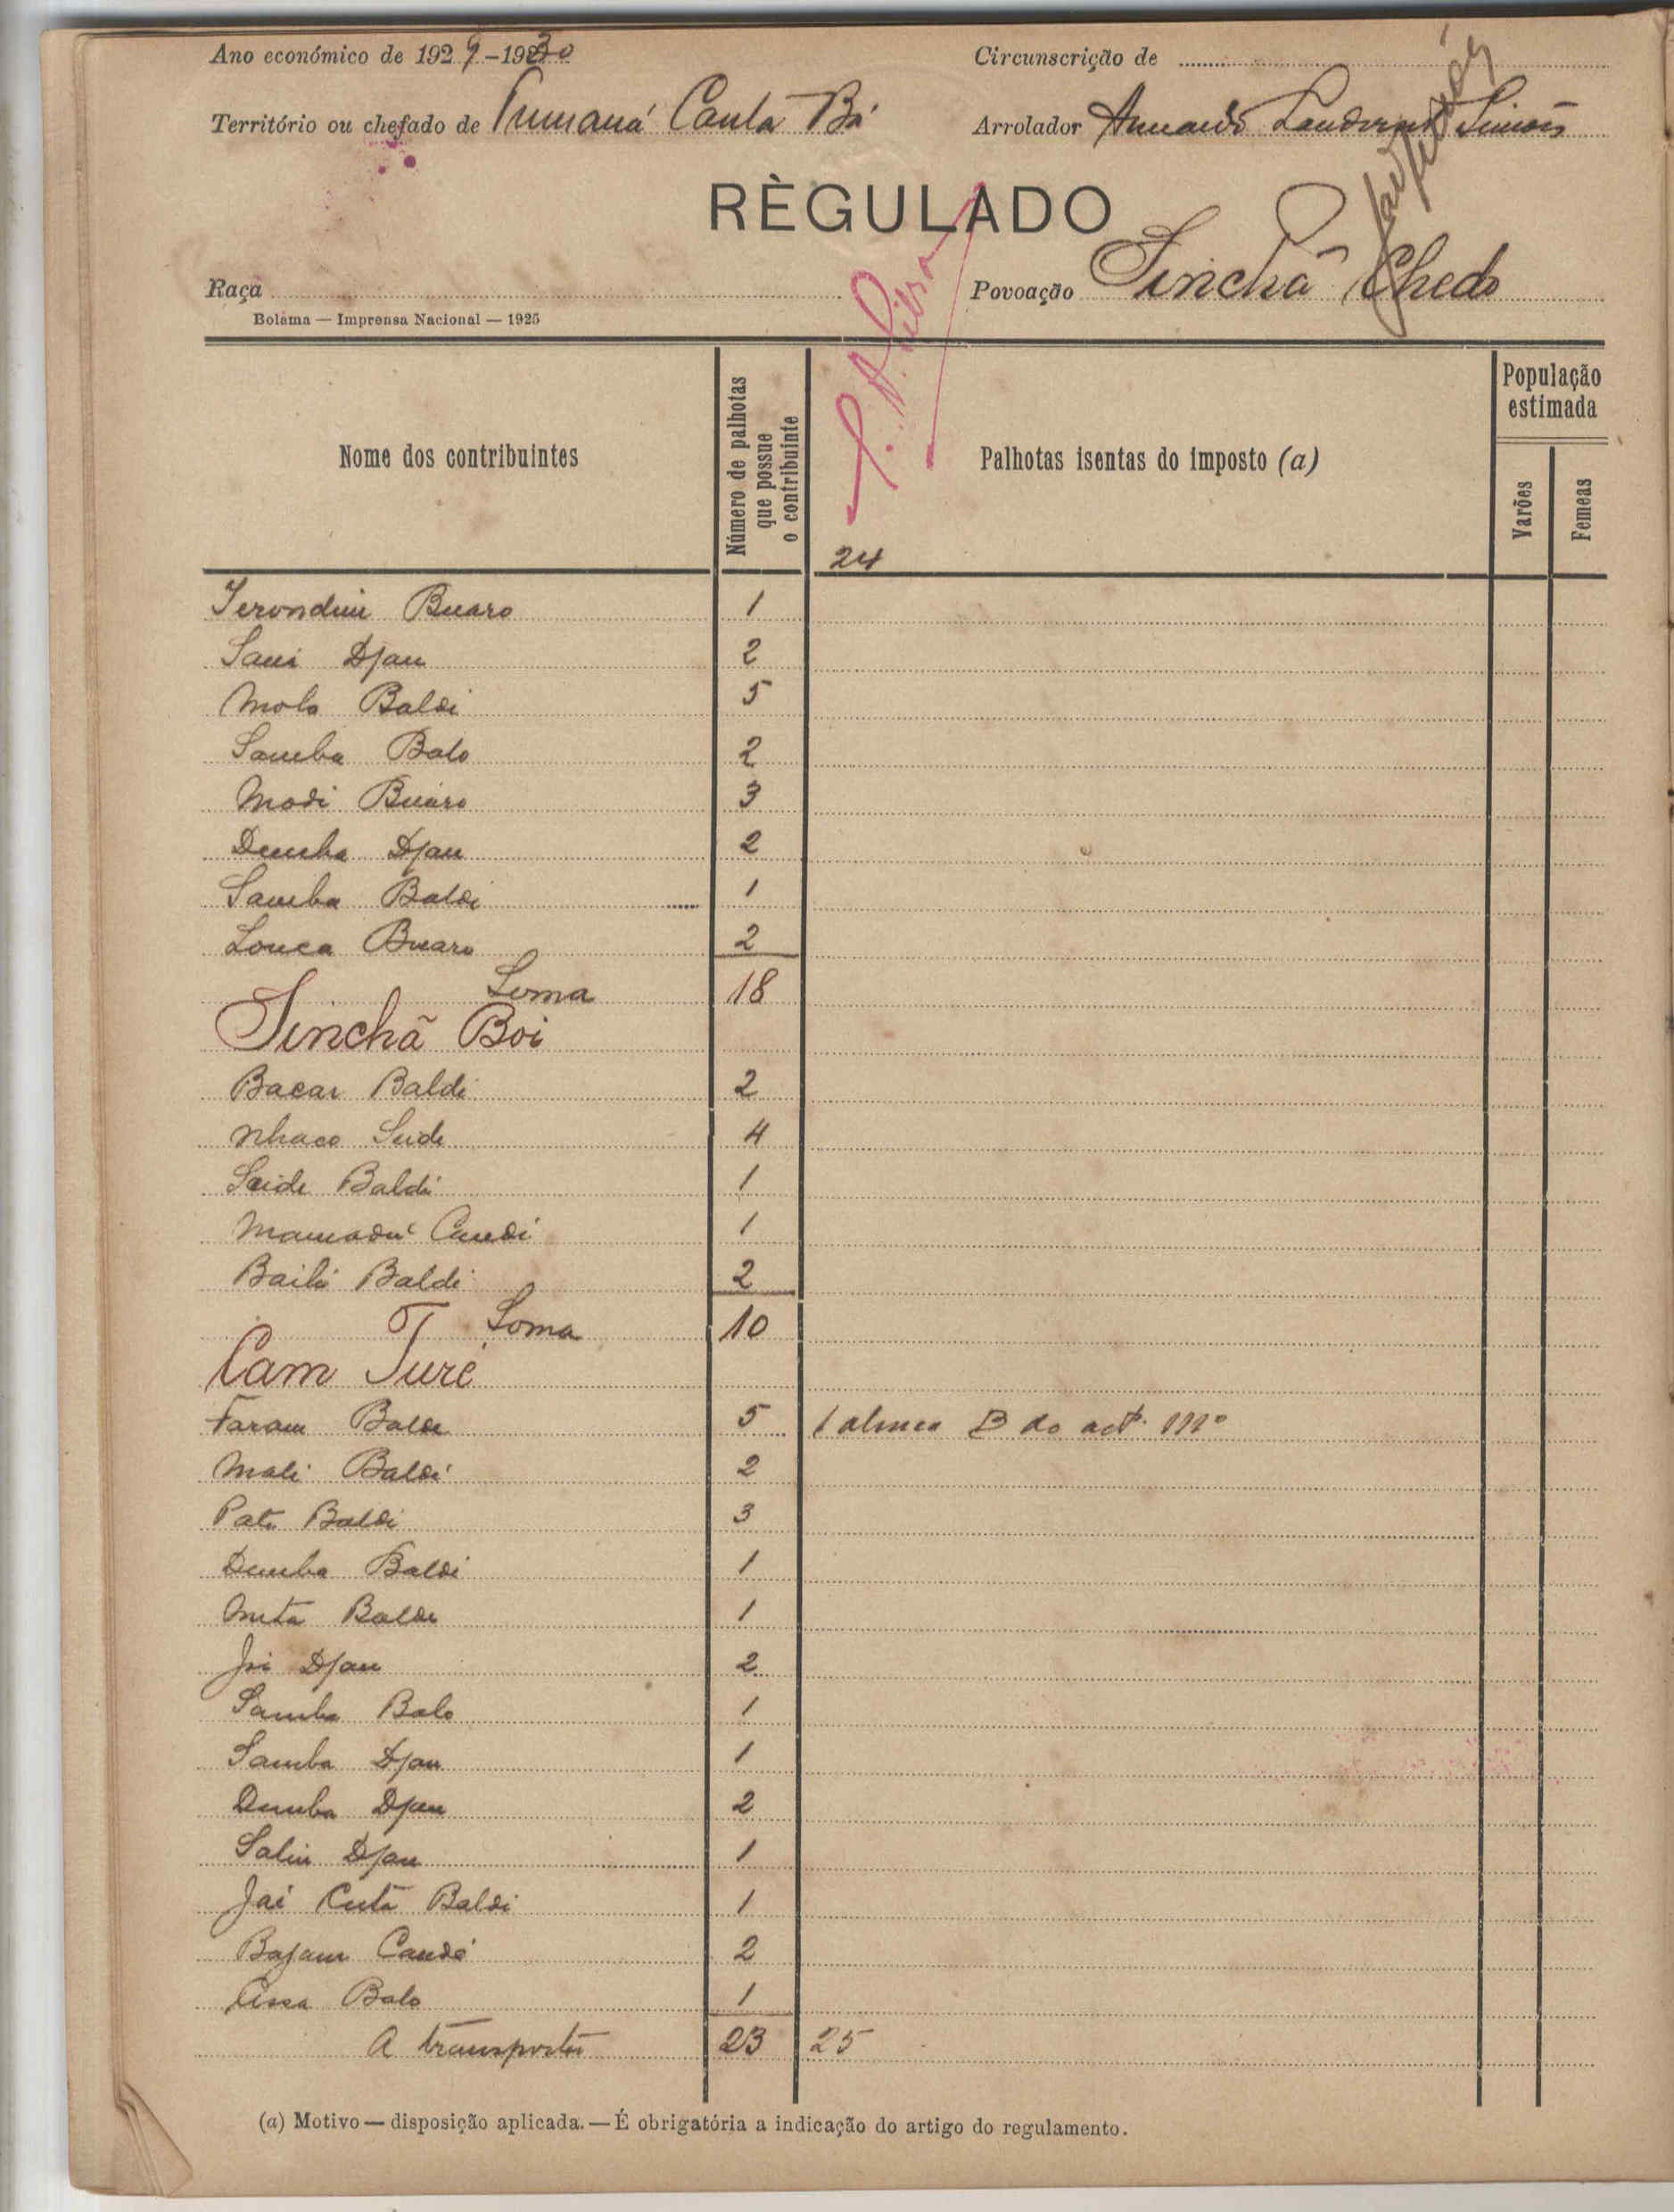 Ano económico de 1929-1930
Circunscrição de
Território ou chefado de Tumaná Canta Bá
Arrolador Armando Simões
RÈGULADO
Raça
Povoação Sinchã Chedo
Bolama — Imprensa Nacional — 1925
Nome dos contribuintes
Número de palhotas que possue o contribuinte
Palhotas isentas do imposto (a)
População estimada
Varões
Femeas
24
Buaro 1
Djau 2
Mola Baldi 5
Samba Balo 2
Modi Buaro 3
Demba Djau 2
Samba Baldi 1
Buaro 2
Soma 18
Sinchã Boi
Bacar Baldi 2
Nhaco Seide 4
Seide Baldi 1
Mamadu Candi 1
Bailo Baldi 2
Soma 10
Cam Turé
Faram Balde 5 1 alinea B do artº. 111º
Mali Baldé 2
Pate Baldi 3
Demba Baldi 1
Balde 1
Djau 2
Samba Balo 1
Samba Djau 1
Demba Djau 2
Saliu Djau 1
Jai Cuta Baldi 1
Bajam Candé 2
Balo 1
A transportar 23 25
(a) Motivo — disposição aplicada. — É obrigatória a indicação do artigo do regulamento.